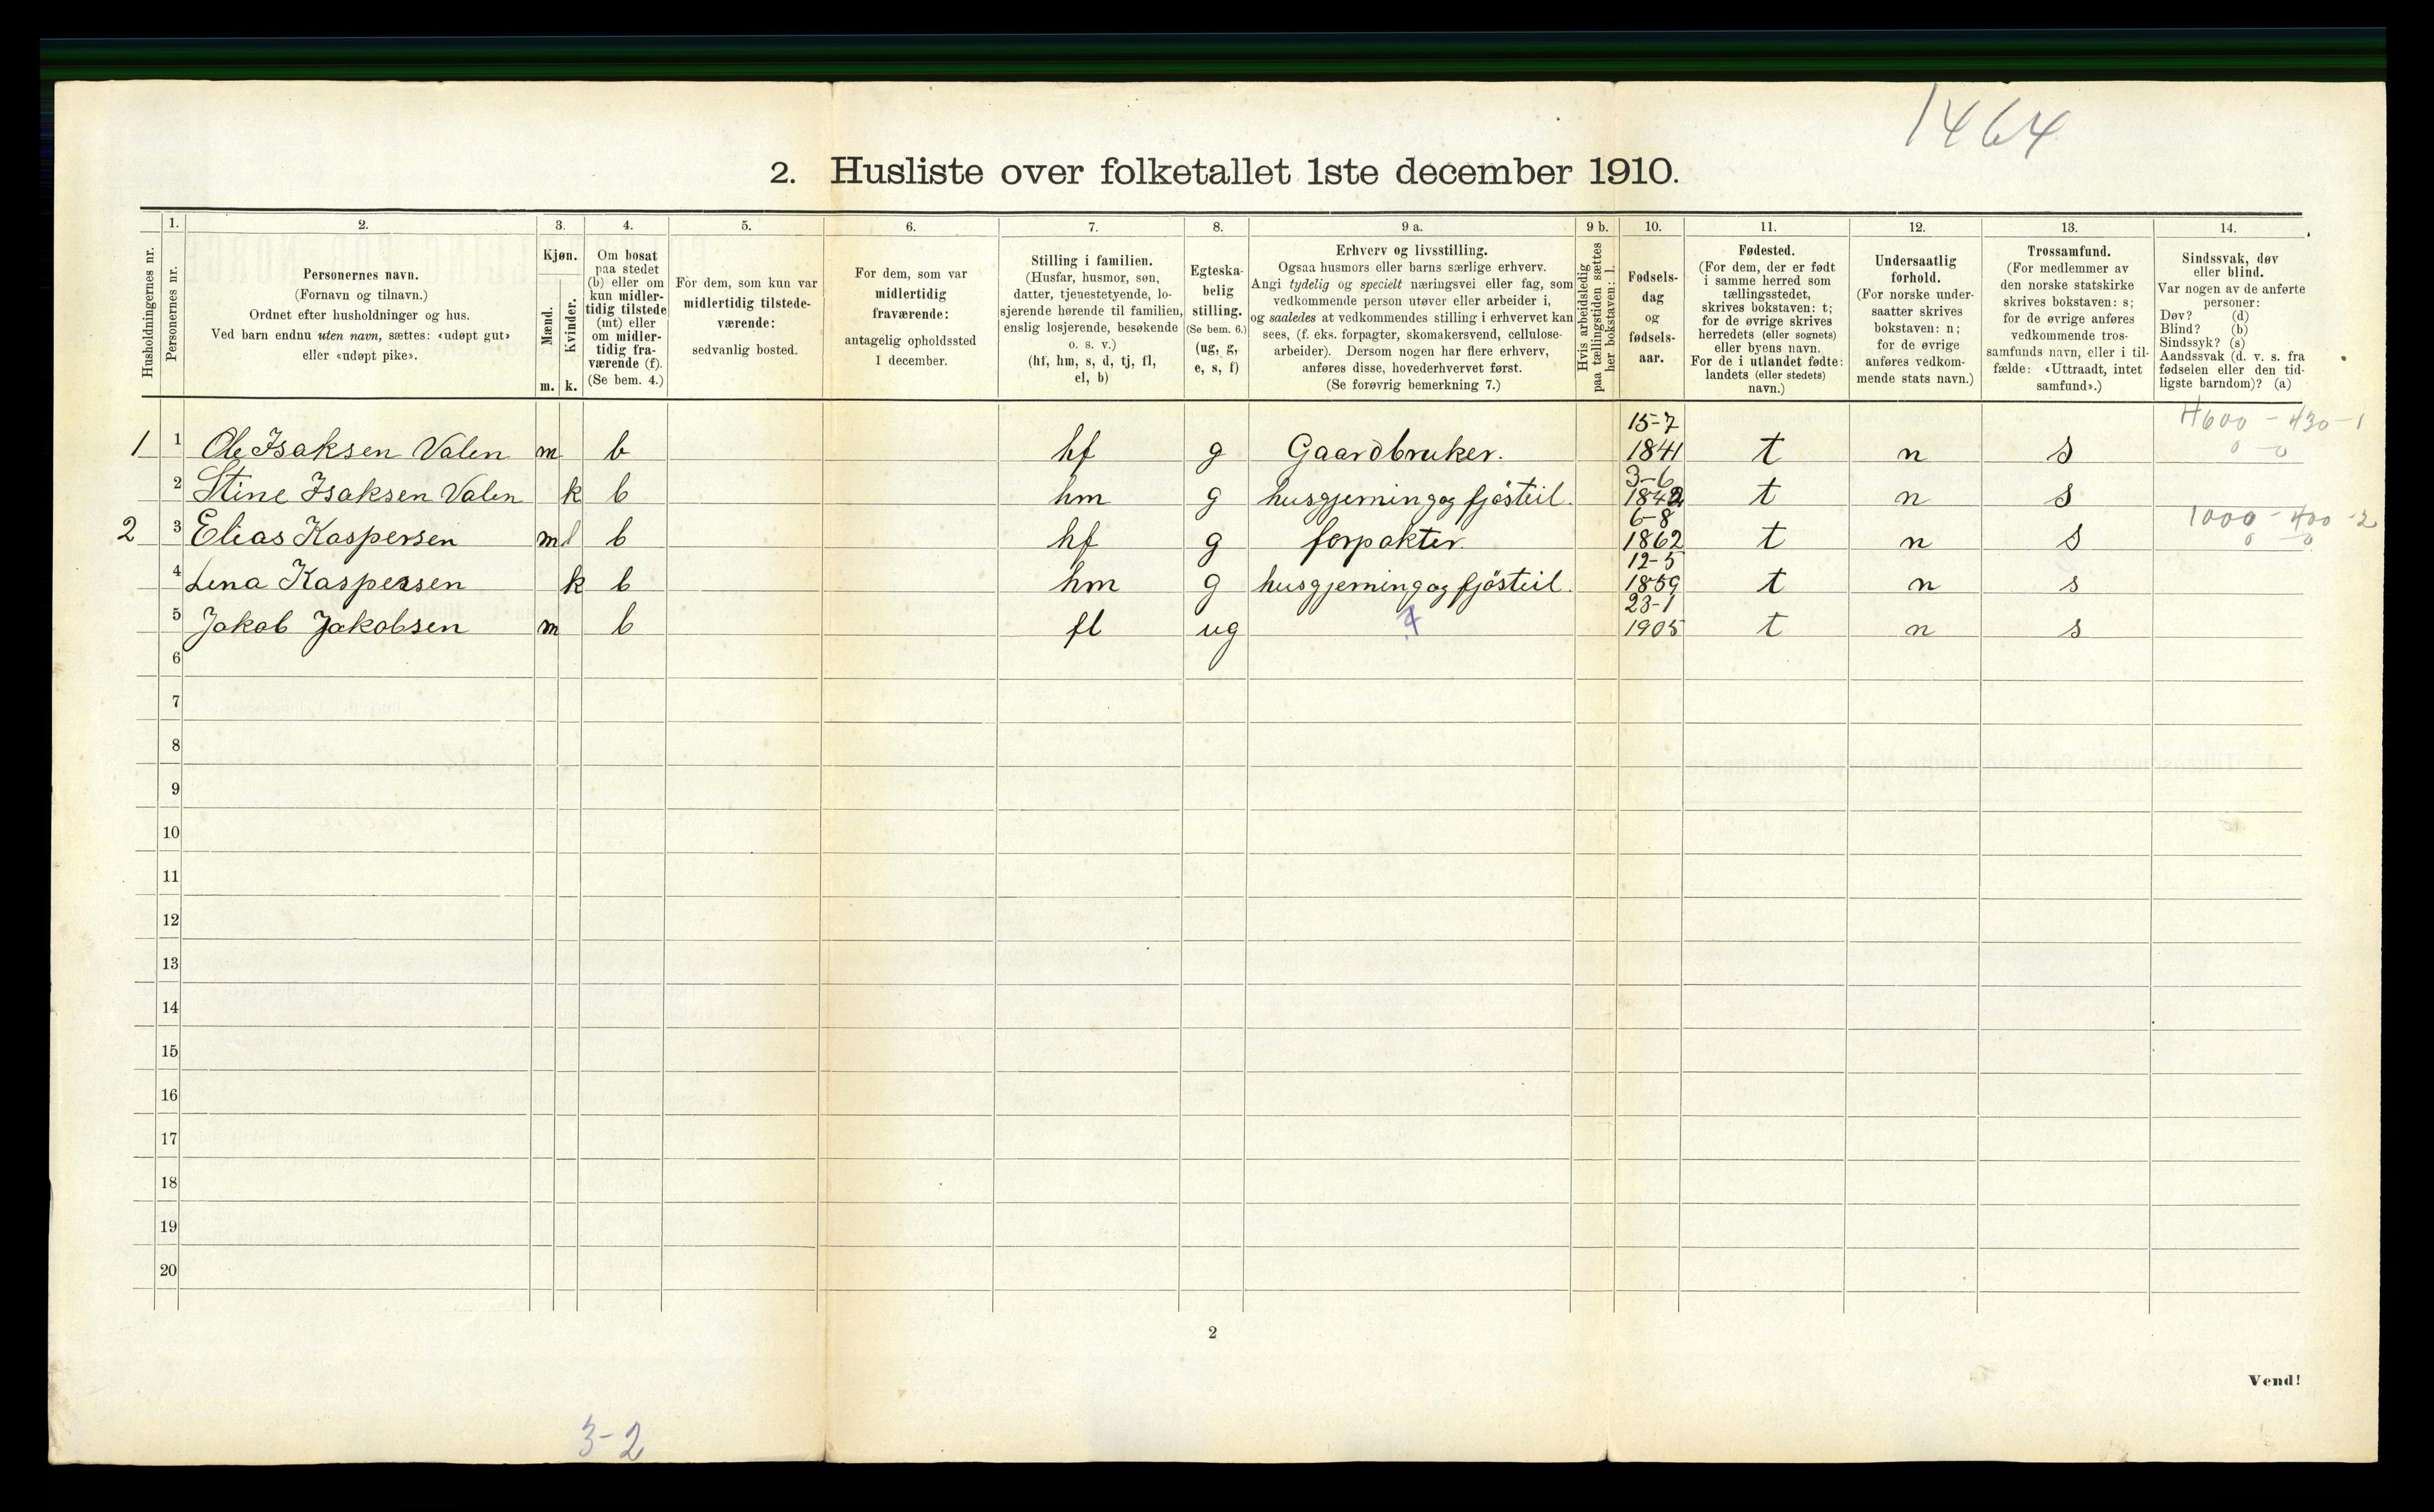 1464
2. Husliste over folketallet 1ste december 1910.
Husholdningernes nr.
1.
Personernes nr.
2.
Personernes navn.
(Fornavn og tilnavn.)
Ordnet efter husholdninger og hus.
Ved barn endnu uten navn, sættes: «udøpt gut»
eller «udøpt pike».
3.
Kjøn.
Mænd.
Kvinder.
m. k.
4.
Om bosat
paa stedet
(b) eller om
kun midler-
tidig tilstede
(mt) eller
om midler-
tidig fra-
værende (f).
(Se bem. 4.)
5.
For dem, som kun var
midlertidig tilstede-
værende:
sedvanlig bosted.
6.
For dem, som var
midlertidig
fraværende:
antagelig opholdssted
1 december.
7.
Stilling i familien.
(Husfar, husmor, søn,
datter, tjenestetyende, lo-
sjerende hørende til familien,
enslig losjerende, besøkende
o. s. v.)
(hf, hm, s, d, tj, fl,
el, b)
8.
Egteska-
belig
stilling.
(Se bem. 6.)
(ug, g,
e, s, f)
9 a.
Erhverv og livsstilling.
Ogsaa husmors eller barns særlige erhverv.
Angi tydelig og specielt næringsvei eller fag, som
vedkommende person utøver eller arbeider i,
og saaledes at vedkommendes stilling i erhvervet kan
sees, (f. eks. forpagter, skomakersvend, cellulose-
arbeider). Dersom nogen har flere erhverv,
anføres disse, hovederhvervet først.
(Se forøvrig bemerkning 7.)
9 b.
Hvis arbeidsledig
paa tællingstiden sættes
her bokstaven: l.
10.
Fødsels-
dag
og
fødsels-
aar.
11.
Fødested.
(For dem, der er født
i samme herred som
tællingsstedet,
skrives bokstaven: t;
for de øvrige skrives
herredets (eller sognets)
eller byens navn.
For de i utlandet fødte:
landets (eller stedets)
navn.)
12.
Undersaatlig
forhold.
(For norske under-
saatter skrives
bokstaven: n;
for de øvrige
anføres vedkom-
mende stats navn.)
13.
Trossamfund.
(For medlemmer av
den norske statskirke
skrives bokstaven: s;
for de øvrige anføres
vedkommende tros-
samfunds navn, eller i til-
fælde: «Uttraadt, intet
samfund».)
14.
Sindssvak, døv
eller blind.
Var nogen av de anførte
personer:
Døv? (d)
Blind? (b)
Sindssyk? (s)
Aandssvak (d. v. s. fra
fødselen eller den tid-
ligste barndom)? (a)
1 1 Ole Isaksen Valen m b hf g Gaardbruker. 15-7 1841 t n s 600 - 430 - 1 0 - 0
2 Stine Isaksen Valen k b hm g husgjerning og fjösteil. 3-6 1842 t n s
2 3 Elias Kaspersen m b hf g forpakter. 6-8 1862 t n s 1000 - 400 - 2 0 - 0
4 Lena Kaspersen k b hm g husgjerning og fjösteil. 12-5 1859 t n s
5 Jakob Jakobsen m b fl ug 23-1 1905 t n s
6
7
8
9
10
11
12
13
14
15
16
17
18
19
20
2
Vend!
3-2